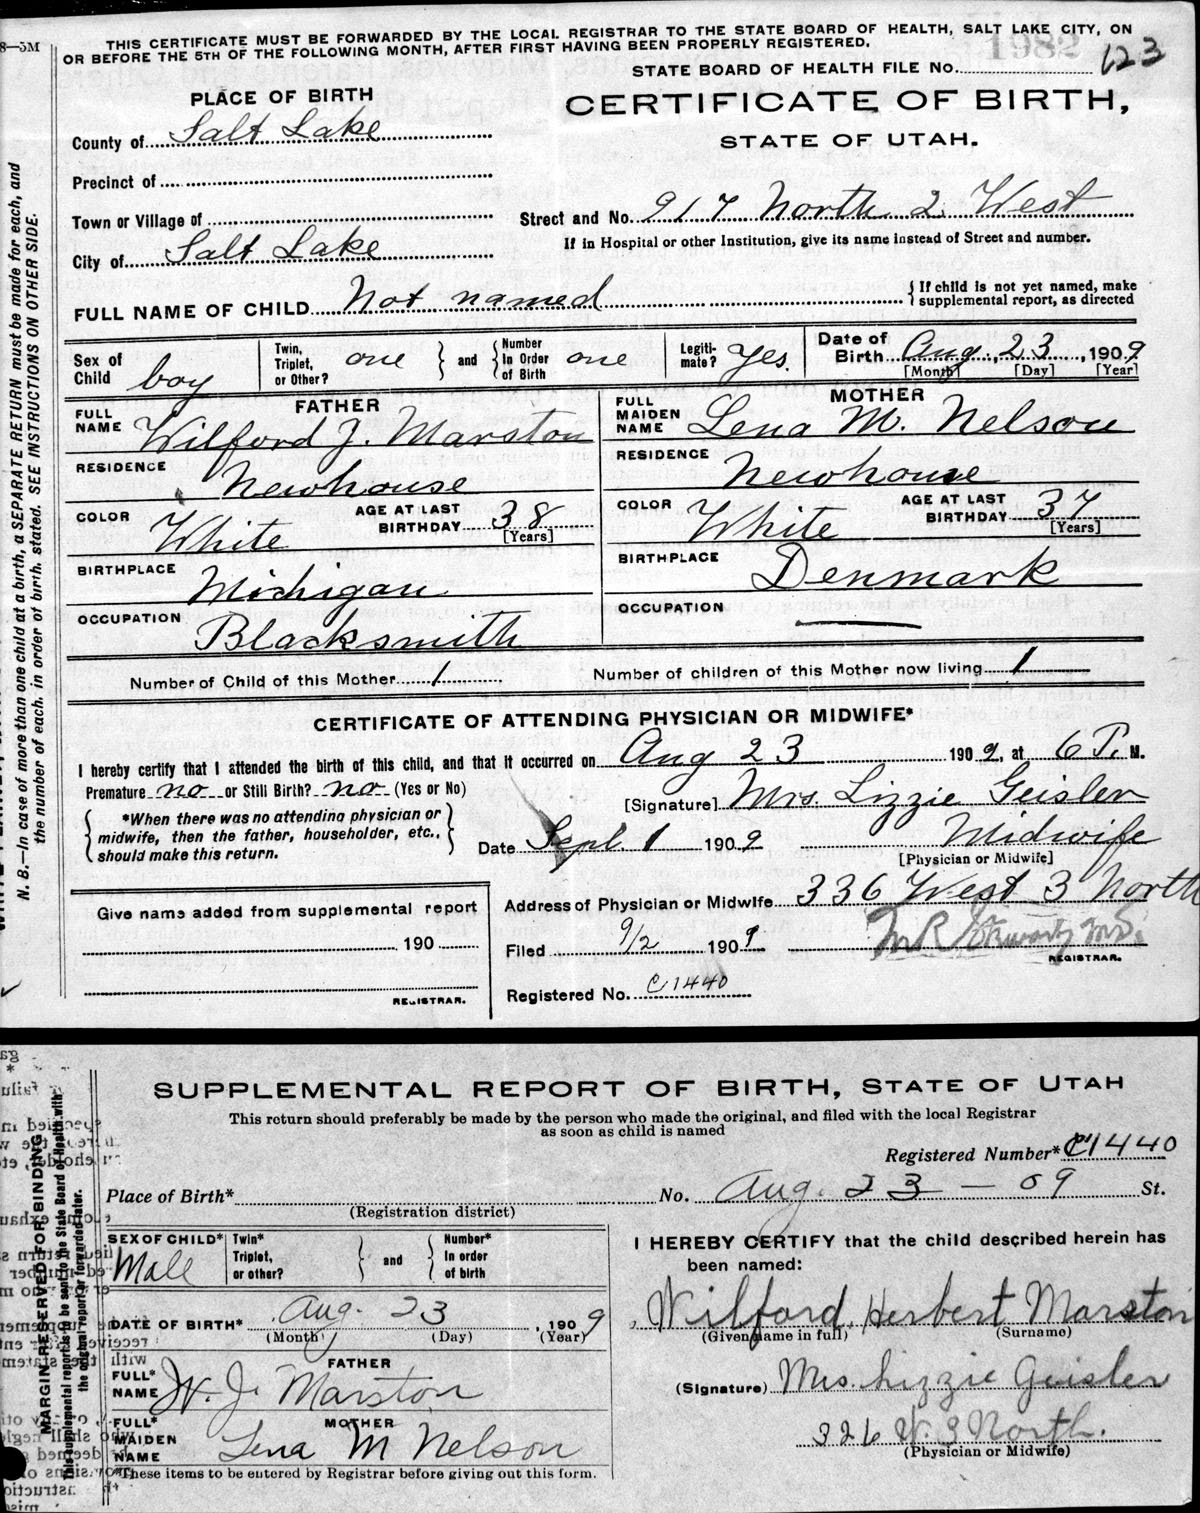 8—5M
THIS CERTIFICATE MUST BE FORWARDED BY THE LOCAL REGISTRAR TO THE STATE BOARD OF HEALTH, SALT LAKE CITY, ON
OR BEFORE THE 5TH OF THE FOLLOWING MONTH, AFTER FIRST HAVING BEEN PROPERLY REGISTERED.
1982
STATE BOARD OF HEALTH FILE No. 123
PLACE OF BIRTH
CERTIFICATE OF BIRTH,
STATE OF UTAH.
County of Salt Lake
Precinct of
Town or Village of
Street and No. 917 North 2 West
If in Hospital or other Institution, give its name instead of Street and number.
City of Salt Lake
FULL NAME OF CHILD Not named
{ If child is not yet named, make
supplemental report, as directed
Sex of Child boy
Twin, Triplet, or Other? one } and { Number In Order of Birth one
Legitimate? Yes.
Date of Birth Aug., 23, 1909
[Month] [Day] [Year]
FATHER
FULL NAME Wilford J. Marston
RESIDENCE Newhouse
COLOR White
AGE AT LAST BIRTHDAY 38
[Years]
BIRTHPLACE Michigan
OCCUPATION Blacksmith
MOTHER
FULL MAIDEN NAME Lena M. Nelson
RESIDENCE Newhouse
COLOR White
AGE AT LAST BIRTHDAY 37
[Years]
BIRTHPLACE Denmark
OCCUPATION
Number of Child of this Mother 1
Number of children of this Mother now living 1
CERTIFICATE OF ATTENDING PHYSICIAN OR MIDWIFE*
I hereby certify that I attended the birth of this child, and that it occurred on Aug 23 1909, at 6 P. M.
Premature no or Still Birth? no (Yes or No)
[Signature] Mrs. Lizzie Geisler
{ *When there was no attending physician or
midwife, then the father, householder, etc.,
should make this return. }
Date Sept. 1 1909
Midwife
[Physician or Midwife]
Give name added from supplemental report
190
REGISTRAR.
Address of Physician or Midwife 336 West 3 North
Filed 9/2 1909
REGISTRAR.
Registered No. C1440
N. B.—In case of more than one child at a birth, a SEPARATE RETURN must be made for each, and
the number of each, in order of birth, stated. SEE INSTRUCTIONS ON OTHER SIDE.
SUPPLEMENTAL REPORT OF BIRTH, STATE OF UTAH
This return should preferably be made by the person who made the original, and filed with the local Registrar
as soon as child is named
Registered Number* C1440
Place of Birth* No. Aug. 23 — 09 St.
(Registration district)
SEX OF CHILD* Male
Twin* Triplet, or other? } and { Number* In order of birth
DATE OF BIRTH* Aug. 23, 1909
(Month) (Day) (Year)
FATHER
FULL* NAME W. J. Marston
MOTHER
FULL* MAIDEN NAME Lena M Nelson
*These items to be entered by Registrar before giving out this form.
I HEREBY CERTIFY that the child described herein has
been named:
Wilford Herbert Marston
(Given name in full) (Surname)
(Signature) Mrs. Lizzie Geisler
326 W. 3 North.
(Physician or Midwife)
MARGIN RESERVED FOR BINDING
This supplemental report is to be sent to the State Board of Health with
the original report or forwarded later.